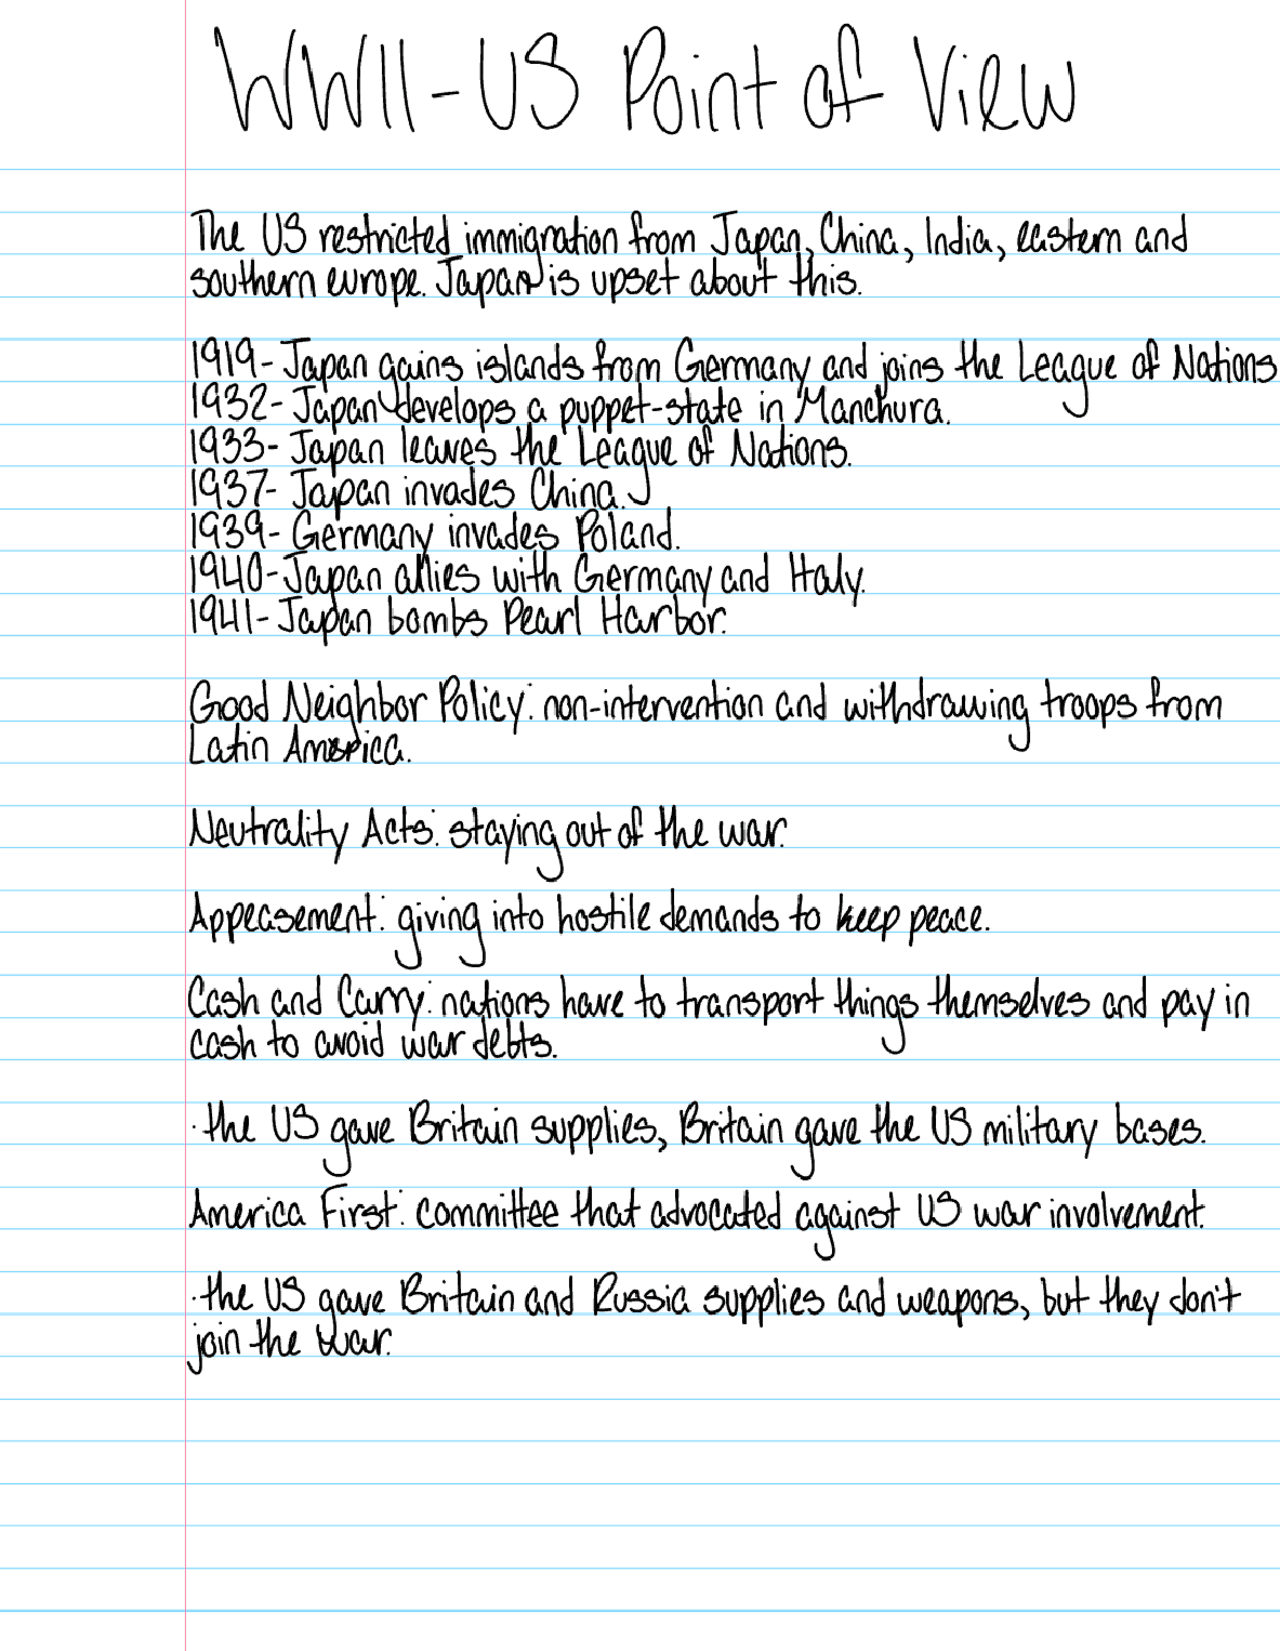 WWII-US Point of View
The US restricted immigration from Japan, China, India, eastern and
southern europe. Japan is upset about this.
1919- Japan gains islands from Germany and joins the League of Nations
1932- Japan develops a puppet-state in Manchura.
1933- Japan leaves the League of Nations.
1937- Japan invades China.
1939- Germany invades Poland.
1940- Japan allies with Germany and Italy.
1941- Japan bombs Pearl Harbor.
Good Neighbor Policy: non-intervention and withdrawing troops from
Latin America.
Neutrality Acts: staying out of the war.
Appeasement: giving into hostile demands to keep peace.
Cash and Carry: nations have to transport things themselves and pay in
cash to avoid war debts.
·the US gave Britain supplies, Britain gave the US military bases.
America First: committee that advocated against US war involvement.
·the US gave Britain and Russia supplies and weapons, but they don't
join the war.